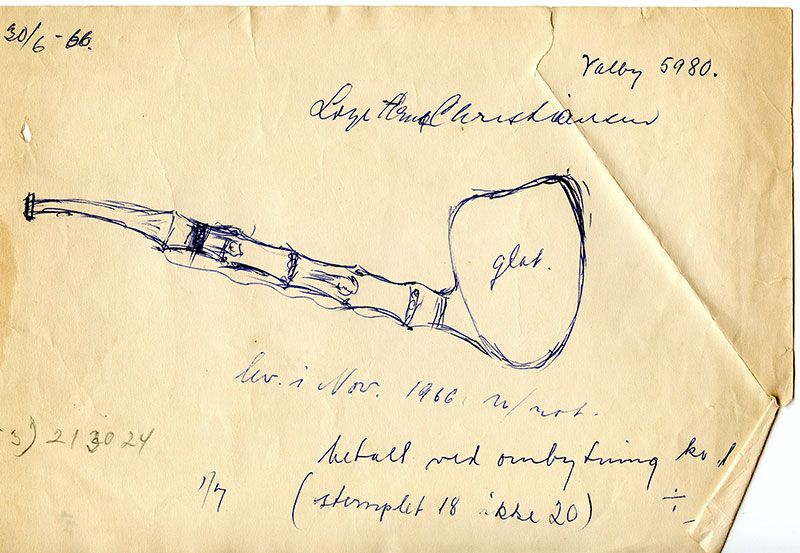 30/6-66.
Valby 5980.
Christiansen
glat.
lev. i Nov. 1966. u/not.
3) 213024
betalt ved ombytning kv.
1/7 (stemplet 18 ikke 20) ÷